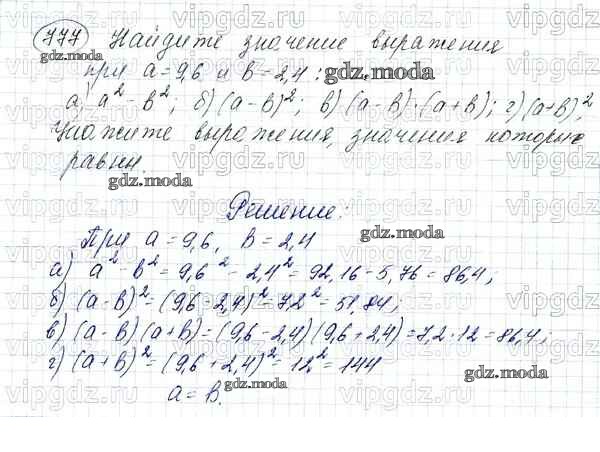 777 Найдите значение выражения
при a = 9,6 и b = 2,4 :
а) a² - b²; б) (a - b)²; в) (a - b)·(a + b); г) (a + b)².
Укажите выражения, значения которых
равны.
Решение:
При a = 9,6, b = 2,4
а) a² - b² = 9,6² - 2,4² = 92,16 - 5,76 = 86,4;
б) (a - b)² = (9,6 - 2,4)² = 7,2² = 51,84;
в) (a - b)(a + b) = (9,6 - 2,4)(9,6 + 2,4) = 7,2 · 12 = 86,4;
г) (a + b)² = (9,6 + 2,4)² = 12² = 144
а = в.
vipgdz.com
gdz.moda